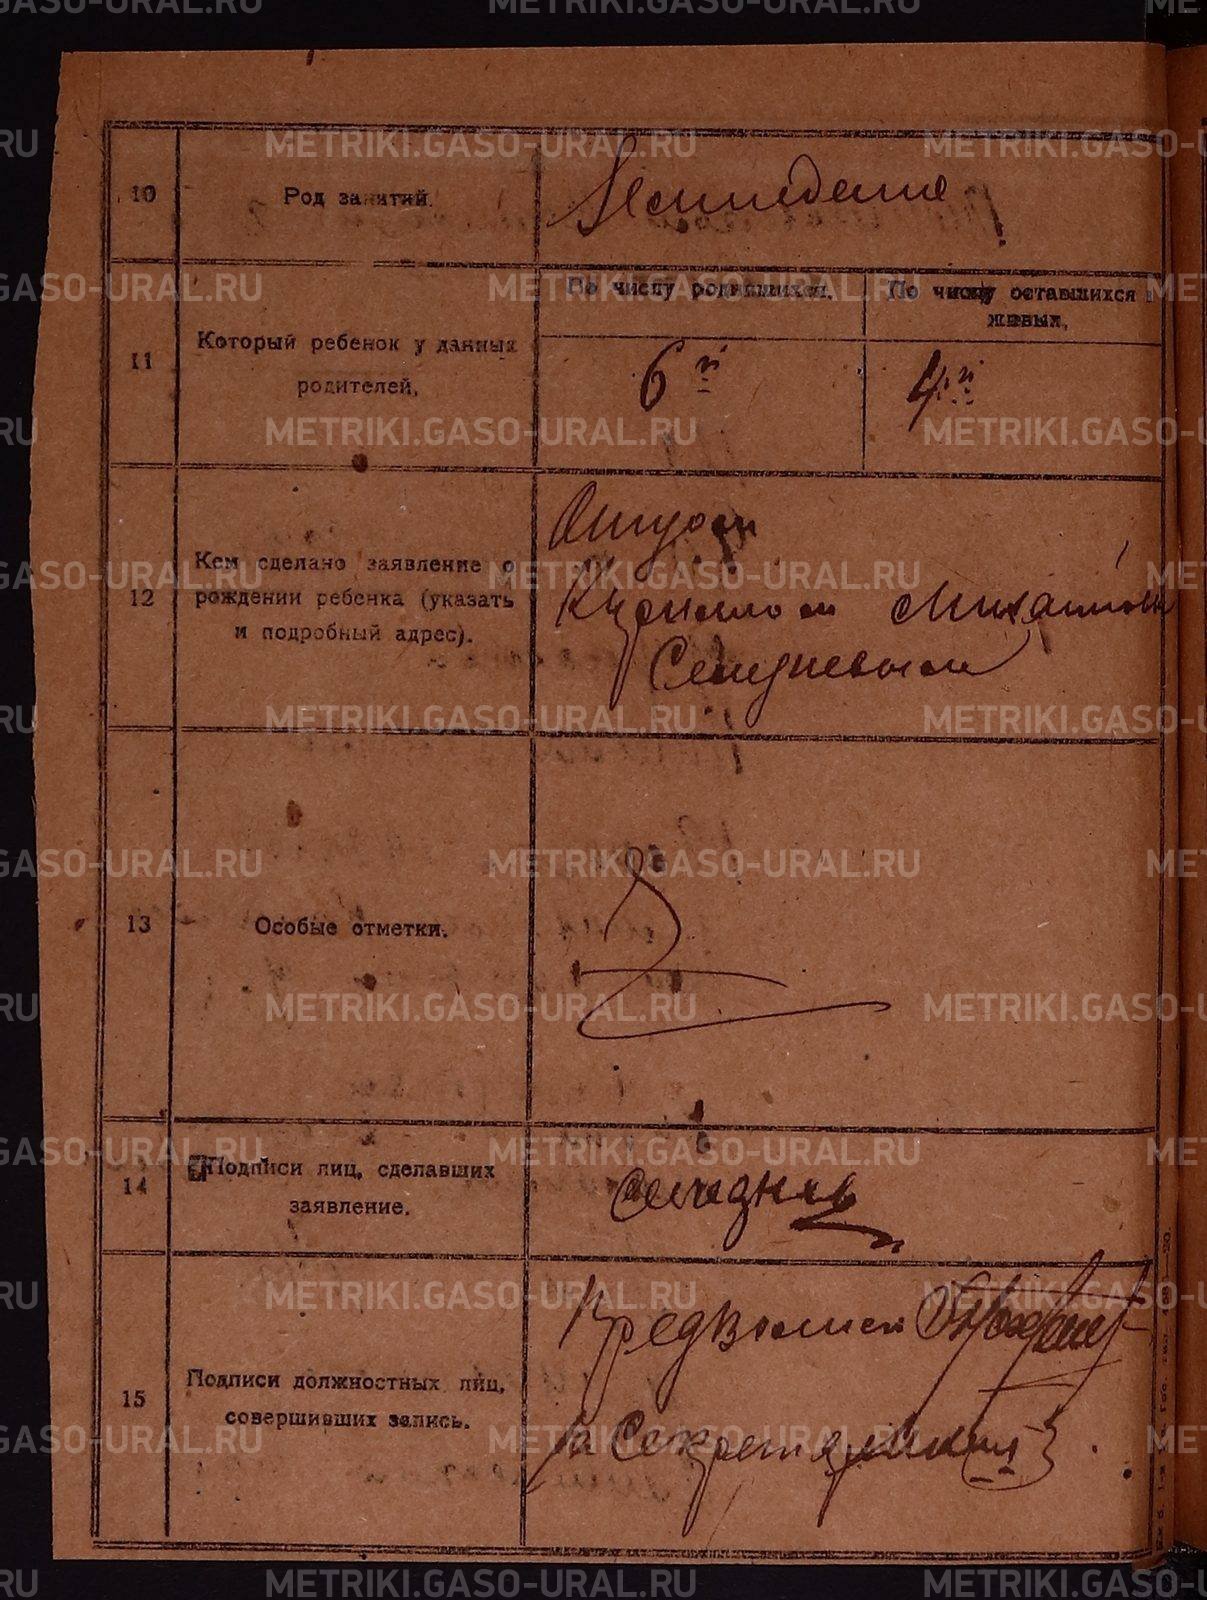 10 Род занятий.
11 Который ребенок у данных
родителей.
По числу родившихся.
6й
По числу оставшихся в
живых.
4й
12 Кем сделано заявление о
рождении ребенка (указать
и подробный адрес).
Отцом
Кириллом Михайловым
13 Особые отметки.
14 Подписи лиц, сделавших
заявление.
15 Подписи должностных лиц,
совершивших запись.
Предволисп
за Секретаря
METRIKI.GASO-URAL.RU